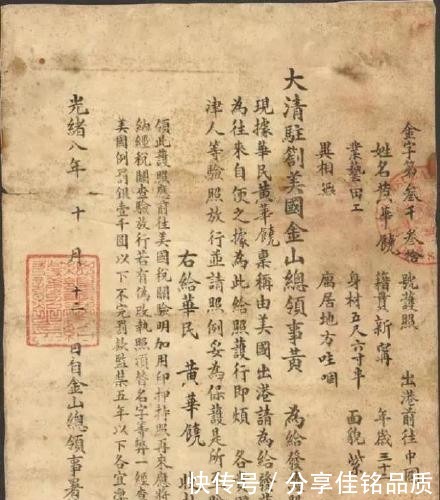 金字第叁千叁拾 號護照 出港前往中
姓名黃華饒 籍貫新寧 年歲三十
業藝田工 身材五尺六寸半 面貌紫
異相無 寓居地方哇咽
大清駐劄美國金山總領事黃 為給發
現據華民黃華饒稟稱由美國出港請為給發
為往來自便之據為此給照護行即煩 各
津人等驗照放行並請照例妥為保護是所
右給華民 黃華饒
領此護照應前往美國稅關驗明加用印押持照再來應將
納經稅關查驗放行若有偽改執照頂替名字等弊一經查
美國例罰銀壹千圓以下不完罰款監禁五年以下各宜凜
光緒八年 十 月 十二 日自金山總領事署
快传号 / 分享佳铭品质